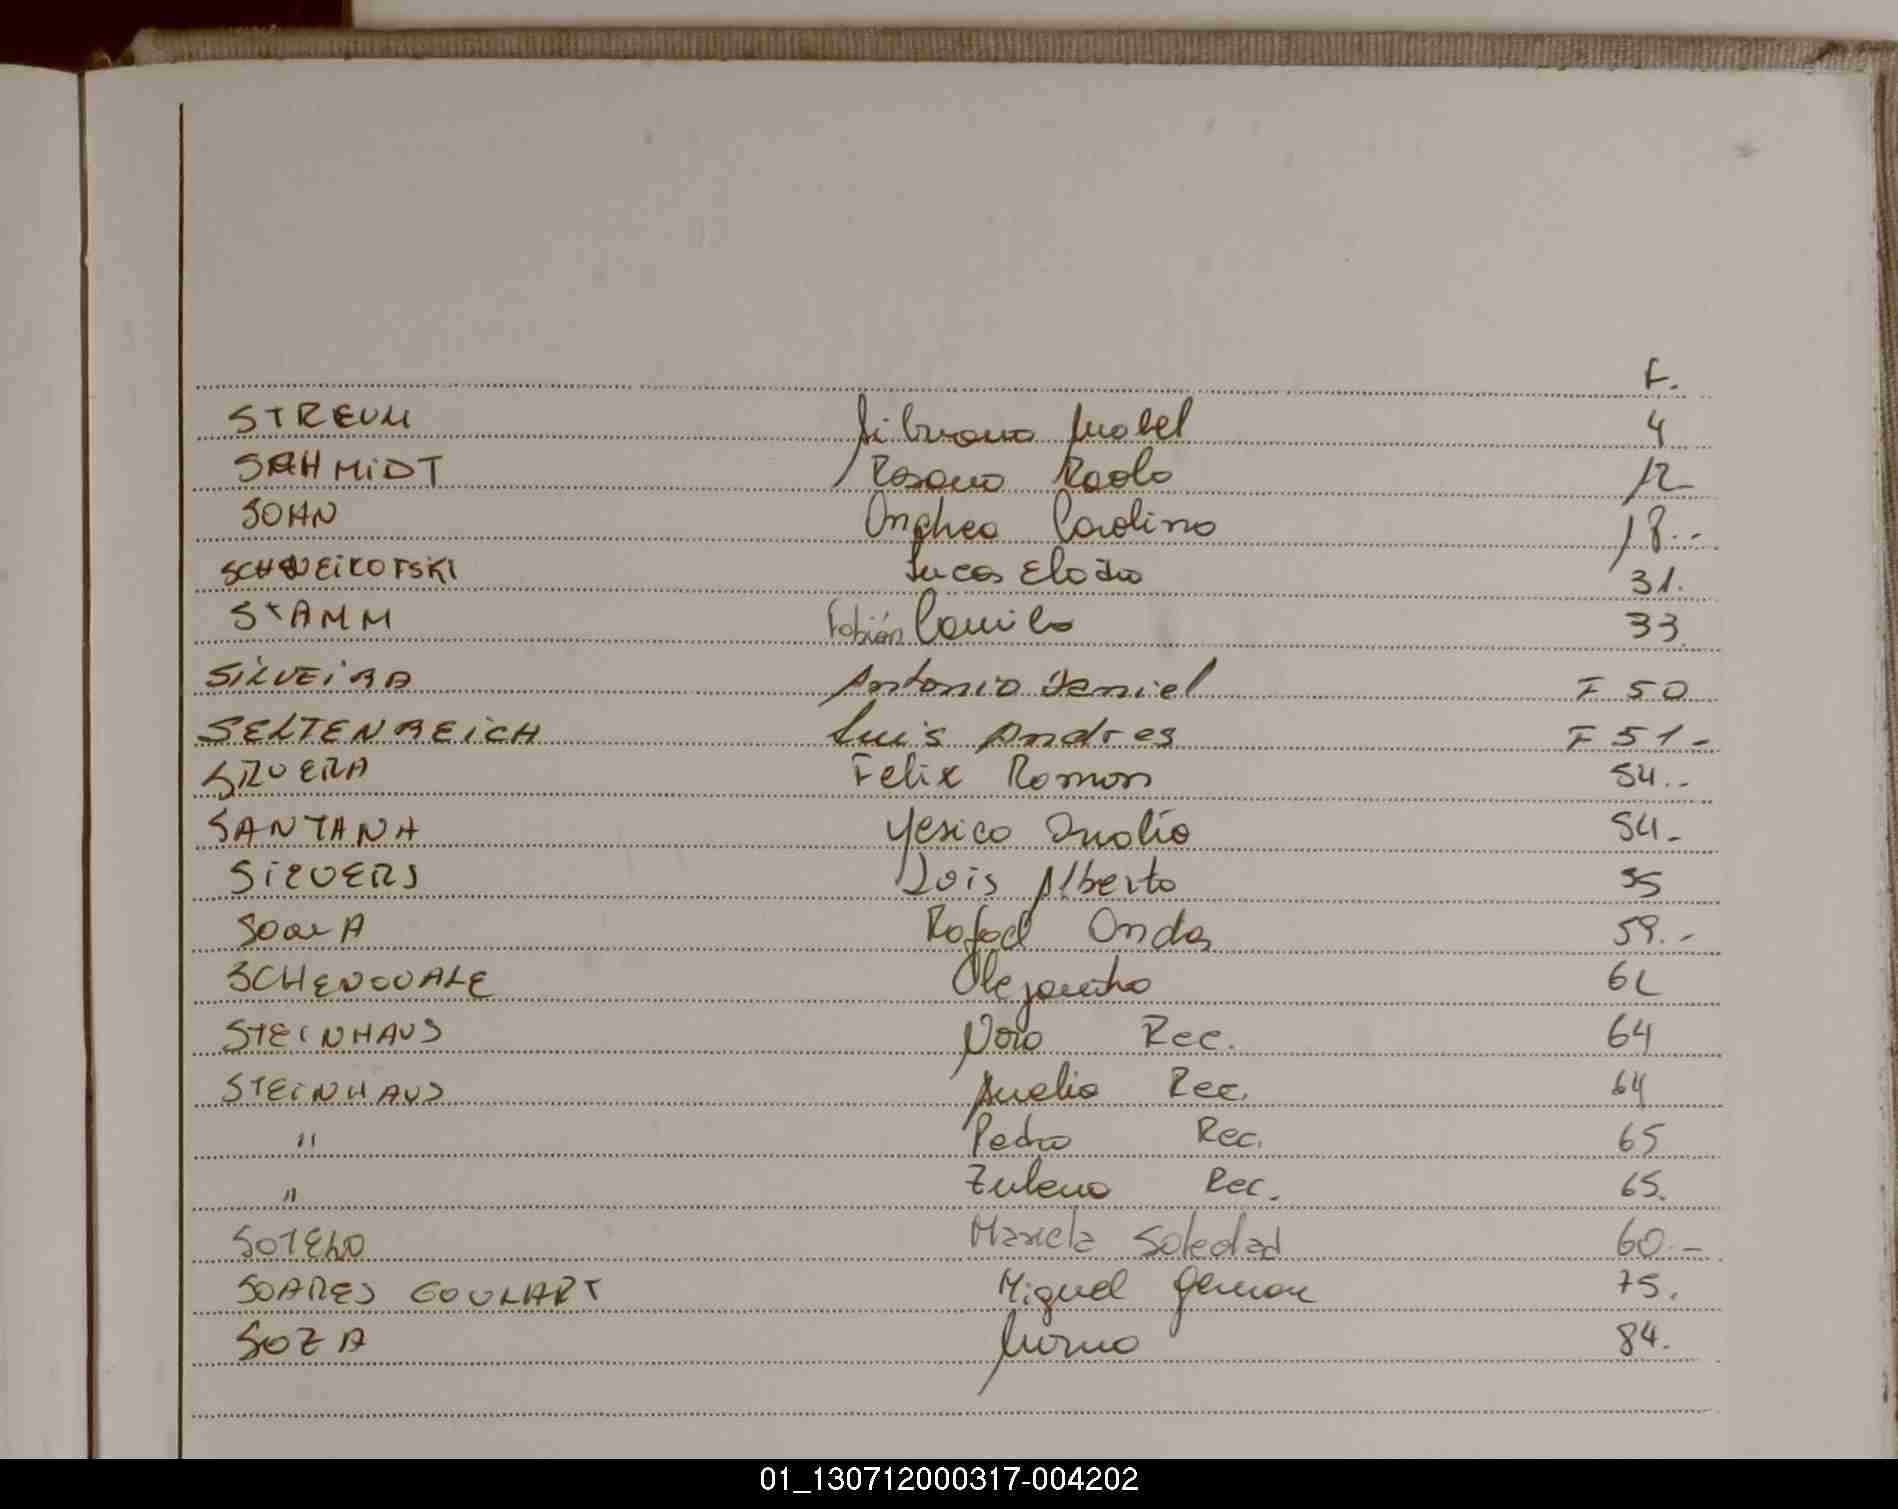 F.
STREUM Silvana Mabel 4
SCHMIDT Rosana Paola 12
SOHN Andrea Carolina 18.-
SCHWEIKOFSKI Lucas Eladio 31.
STAMM Fabián Camilo 33
SILVEIRA Antonio Daniel F 50
SELTENREICH Luis Andres F 51-
SILVERA Felix Ramon 54.-
SANTANA Yesica Analía 54-
SILVERS Luis Alberto 55
Rafael
Alejandro
STEINHAUS Nora Rec. 64
STEINHAUS Amelia Rec. 64
" Pedro Rec. 65
" Zulema Rec. 65.
SOTELO Mariela Soledad 60.-
SOARES GOULART Miguel German 75.
SOZA 84.
01_130712000317-004202